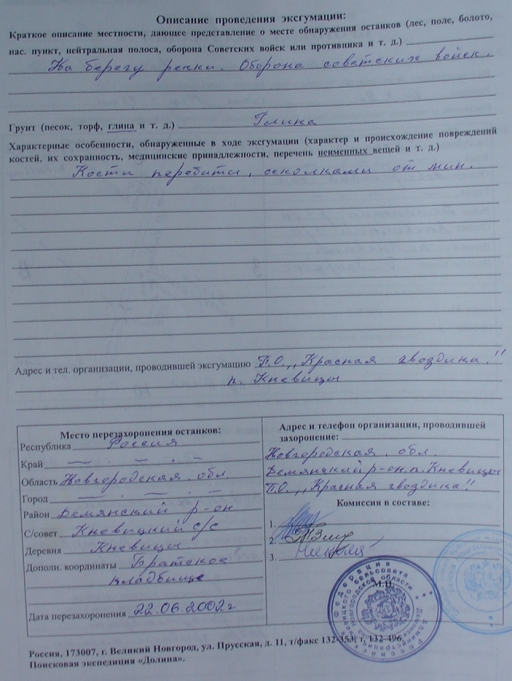 Описание проведения эксгумации:
Краткое описание местности, дающее представление о месте обнаружения останков (лес, поле, болото,
нас. пункт, нейтральная полоса, оборона Советских войск или противника и т. д.)
На берегу речки. Оборона советских войск.
Грунт (песок, торф, глина и т. д.) Глина
Характерные особенности, обнаруженные в ходе эксгумации (характер и происхождение повреждений
костей, их сохранность, медицинские принадлежности, перечень неименных вещей и т. д.)
Кости перебиты, осколками от мин.
Адрес и тел. организации, проводившей эксгумацию П.О. ,,Красная гвоздика!!
п. Кневицы
Место перезахоронения останков:
Республика Россия
Край — . — . —
Область Новгородская обл.
Город — . — . —
Район Демянский р-он
С/совет Кневицкий с/с
Деревня Кневицы
Дополн. координаты Братское
кладбище
Дата перезахоронения 22.06.2002г
Адрес и телефон организации, проводившей
захоронение:
Новгородская обл.
Демянский р-он п. Кневицы
П.О. ,,Красная гвоздика!!
Комиссия в составе:
1.
2.
3.
М.П.
Россия, 173007, г. Великий Новгород, ул. Прусская, д. 11, т/факс 132-353, т. 132-496.
Поисковая экспедиция «Долина».